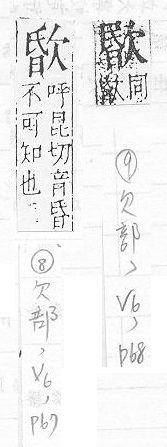 同
⑨欠部、V6, P68
呼昆切音昏
不可知也
⑧欠部、V6, P67